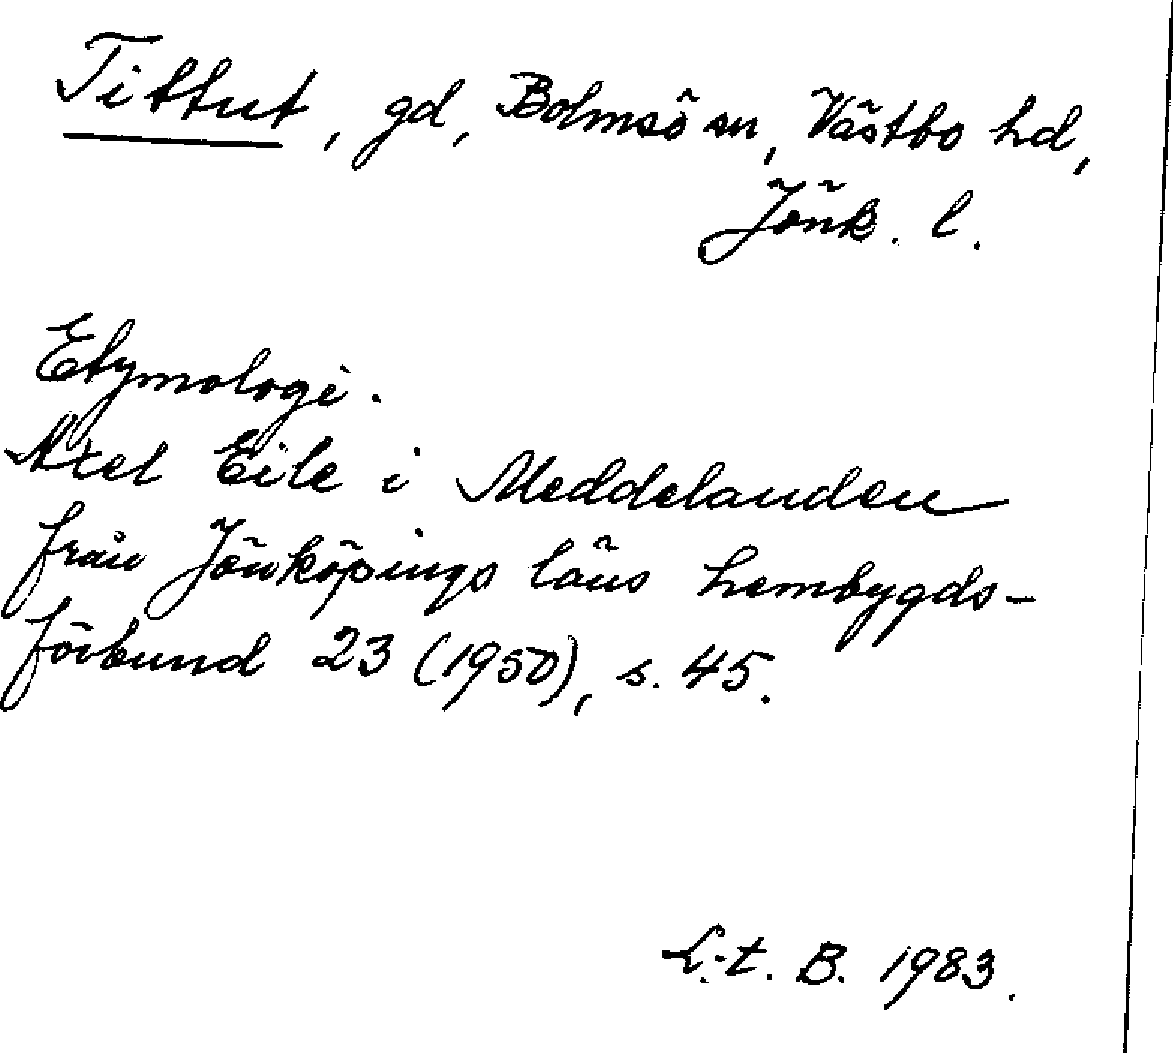 Tittut, gd, Bolmsö sn, Västbo hd,
Jönk. l.
Etymologi.
Axel Eile i Meddelanden
från Jönköpings läns hembygds-
förbund 23 (1950), s. 45.
L.-t. B. 1983.